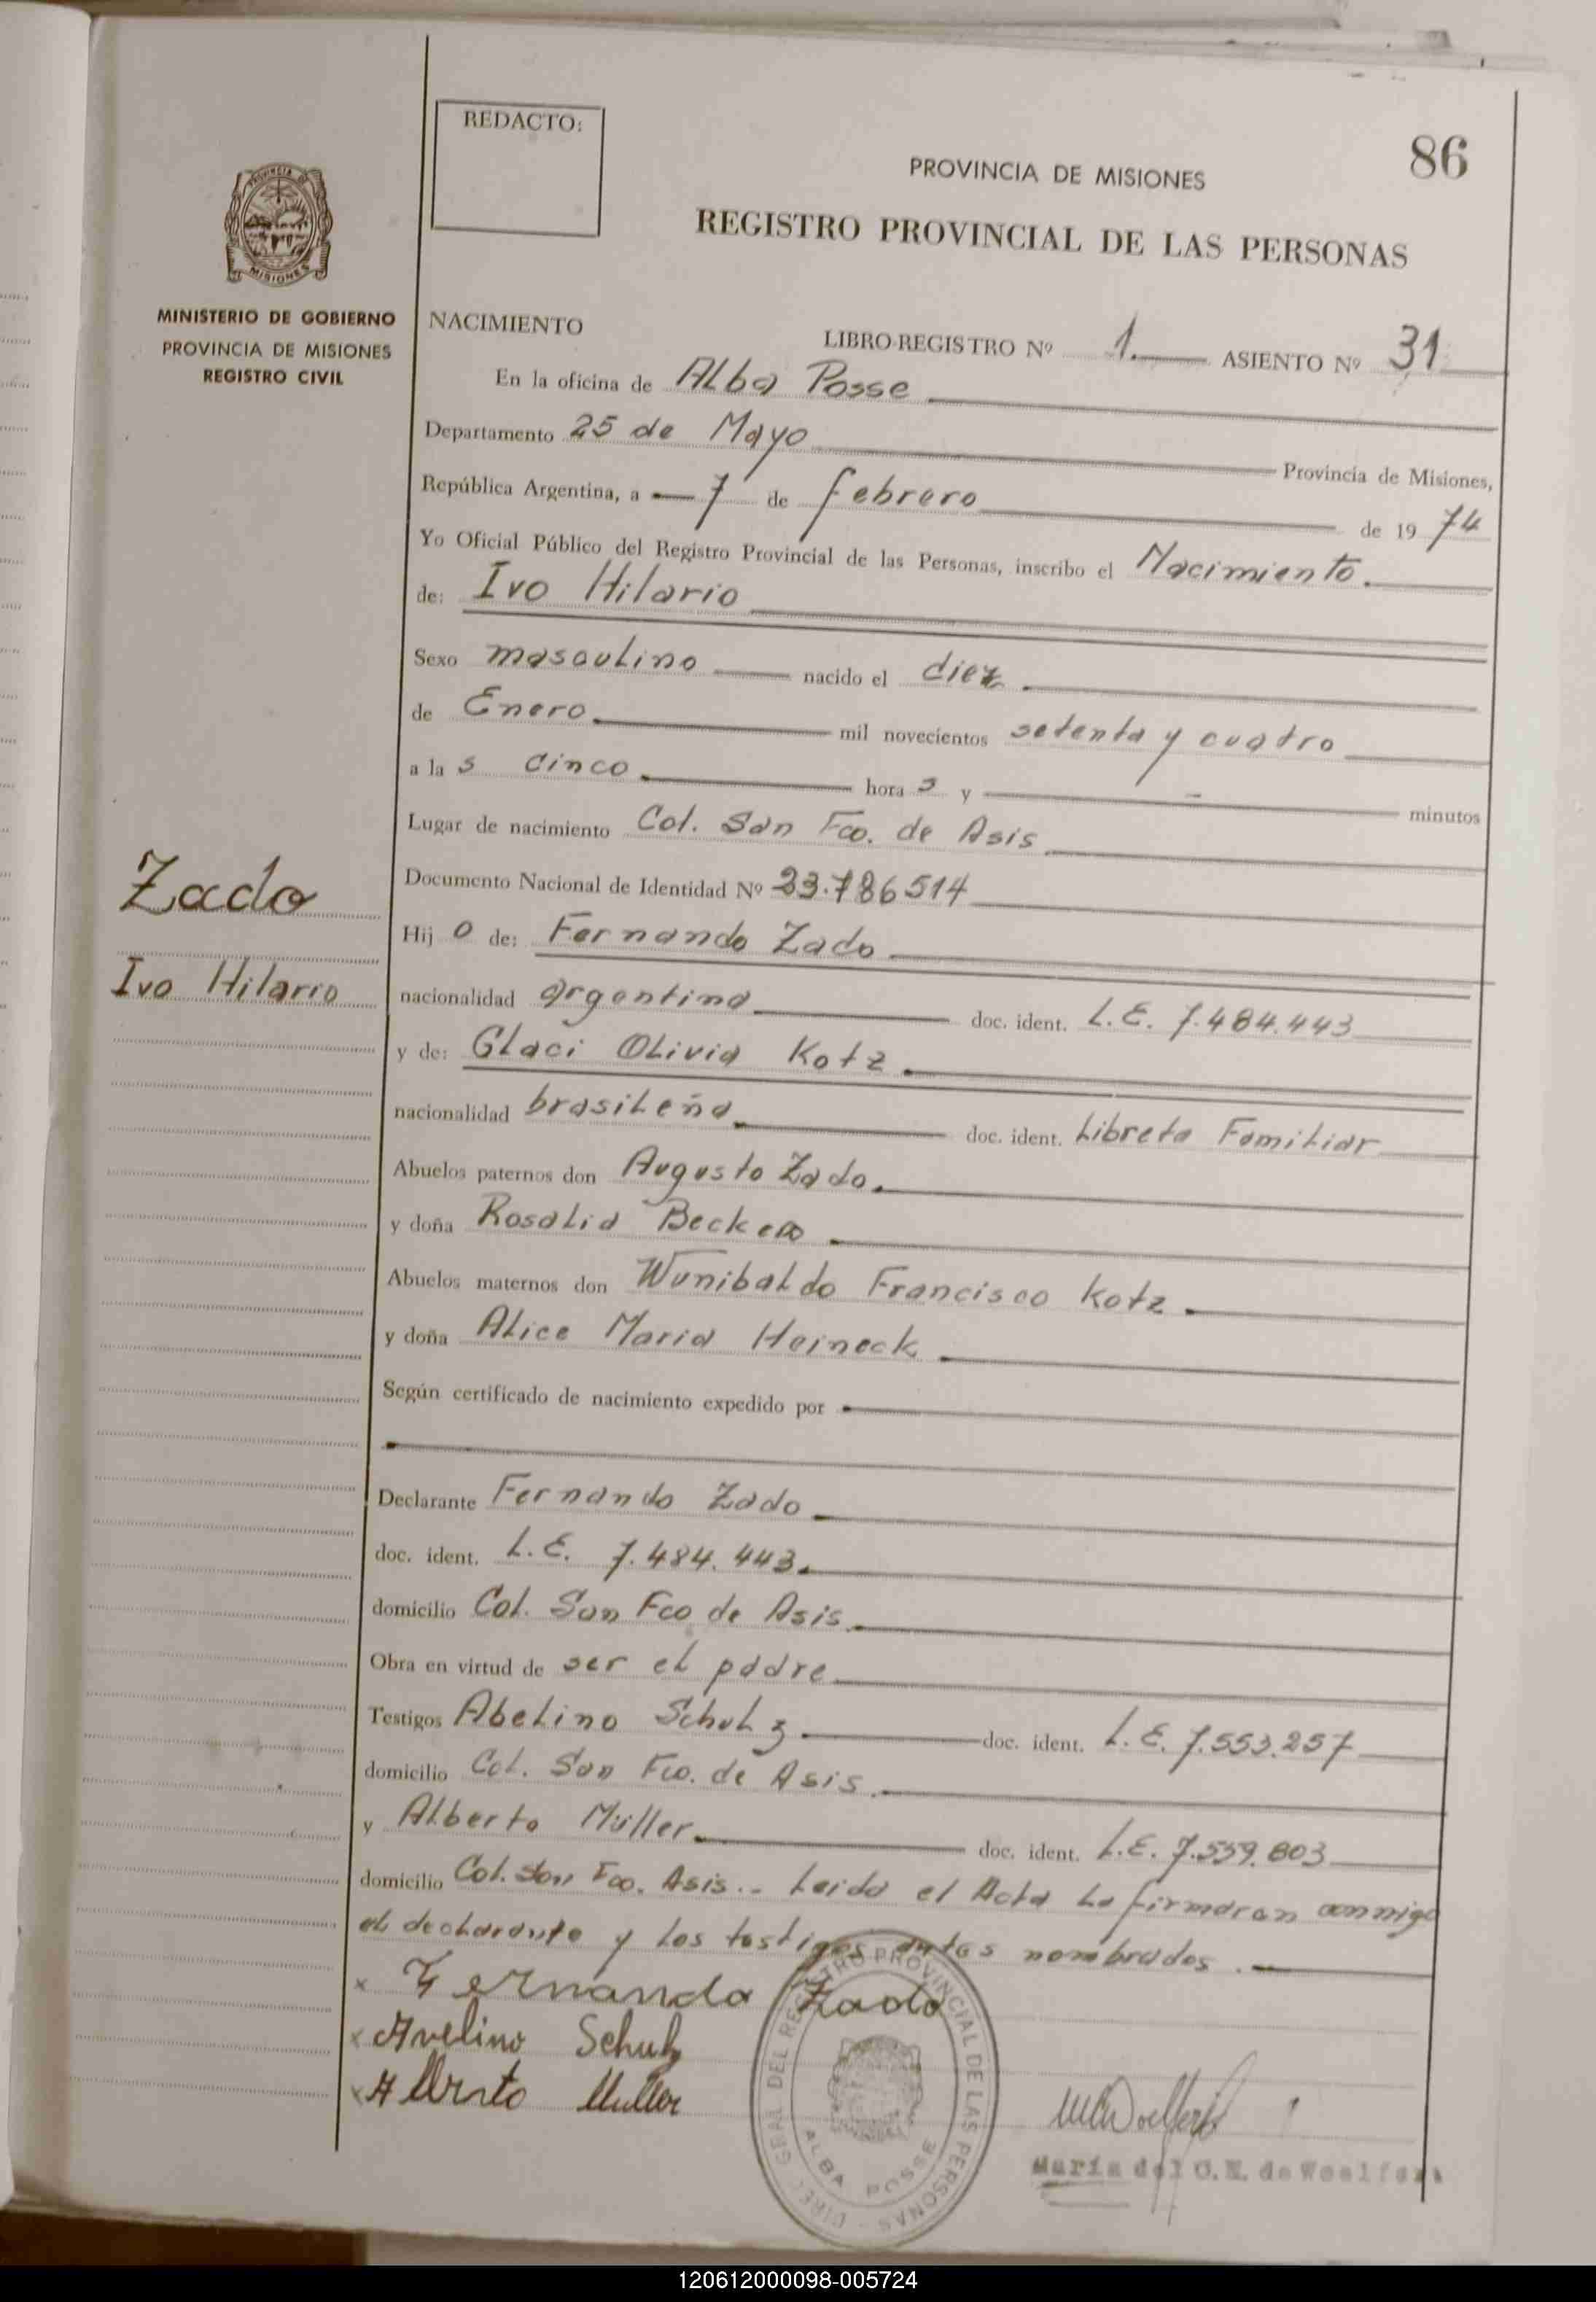 REDACTO:
86
PROVINCIA DE MISIONES
REGISTRO PROVINCIAL DE LAS PERSONAS
PROVINCIA DE
MISIONES
MINISTERIO DE GOBIERNO
PROVINCIA DE MISIONES
REGISTRO CIVIL
NACIMIENTO
LIBRO-REGISTRO Nº 1. ASIENTO Nº 31
En la oficina de Alba Posse
Departamento 25 de Mayo Provincia de Misiones,
República Argentina, a 7 de febrero de 1974
Yo Oficial Público del Registro Provincial de las Personas, inscribo el Nacimiento.
de: Ivo Hilario
Sexo masculino nacido el diez
de Enero. mil novecientos setenta y cuatro
a las cinco horas y - minutos
Lugar de nacimiento Col. San Fco. de Asis
Documento Nacional de Identidad Nº 23.786514
Zado
Hijo de: Fernando Zado
Ivo Hilario
nacionalidad argentina doc. ident. L.E. 7.484.443
y de: Glaci Olivia Kotz.
nacionalidad brasileña doc. ident. Libreta Familiar
Abuelos paternos don Augusto Zado.
y doña Rosalia Becker
Abuelos maternos don Wunibaldo Francisco Kotz.
y doña Alice Maria Heineck
Según certificado de nacimiento expedido por
Declarante Fernando Zado
doc. ident. L.E. 7.484.443.
domicilio Col. San Fco de Asis.
Obra en virtud de ser el padre
Testigos Abelino Schulz doc. ident. L.E. 7.553.257
domicilio Col. San Fco. de Asis.
y Alberto Müller. doc. ident. L.E. 7.559.803
domicilio Col. San Fco. Asis.- Leida el Acta la firmaran conmigo
el declarante y los testigos antes nombrados.
x Fernando Zado
x Avelino Schulz
x Alberto Muller
DIREC. GRAL. DEL REGISTRO PROVINCIAL DE LAS PERSONAS
ALBA POSSE
María del C. N. de
120612000098-005724